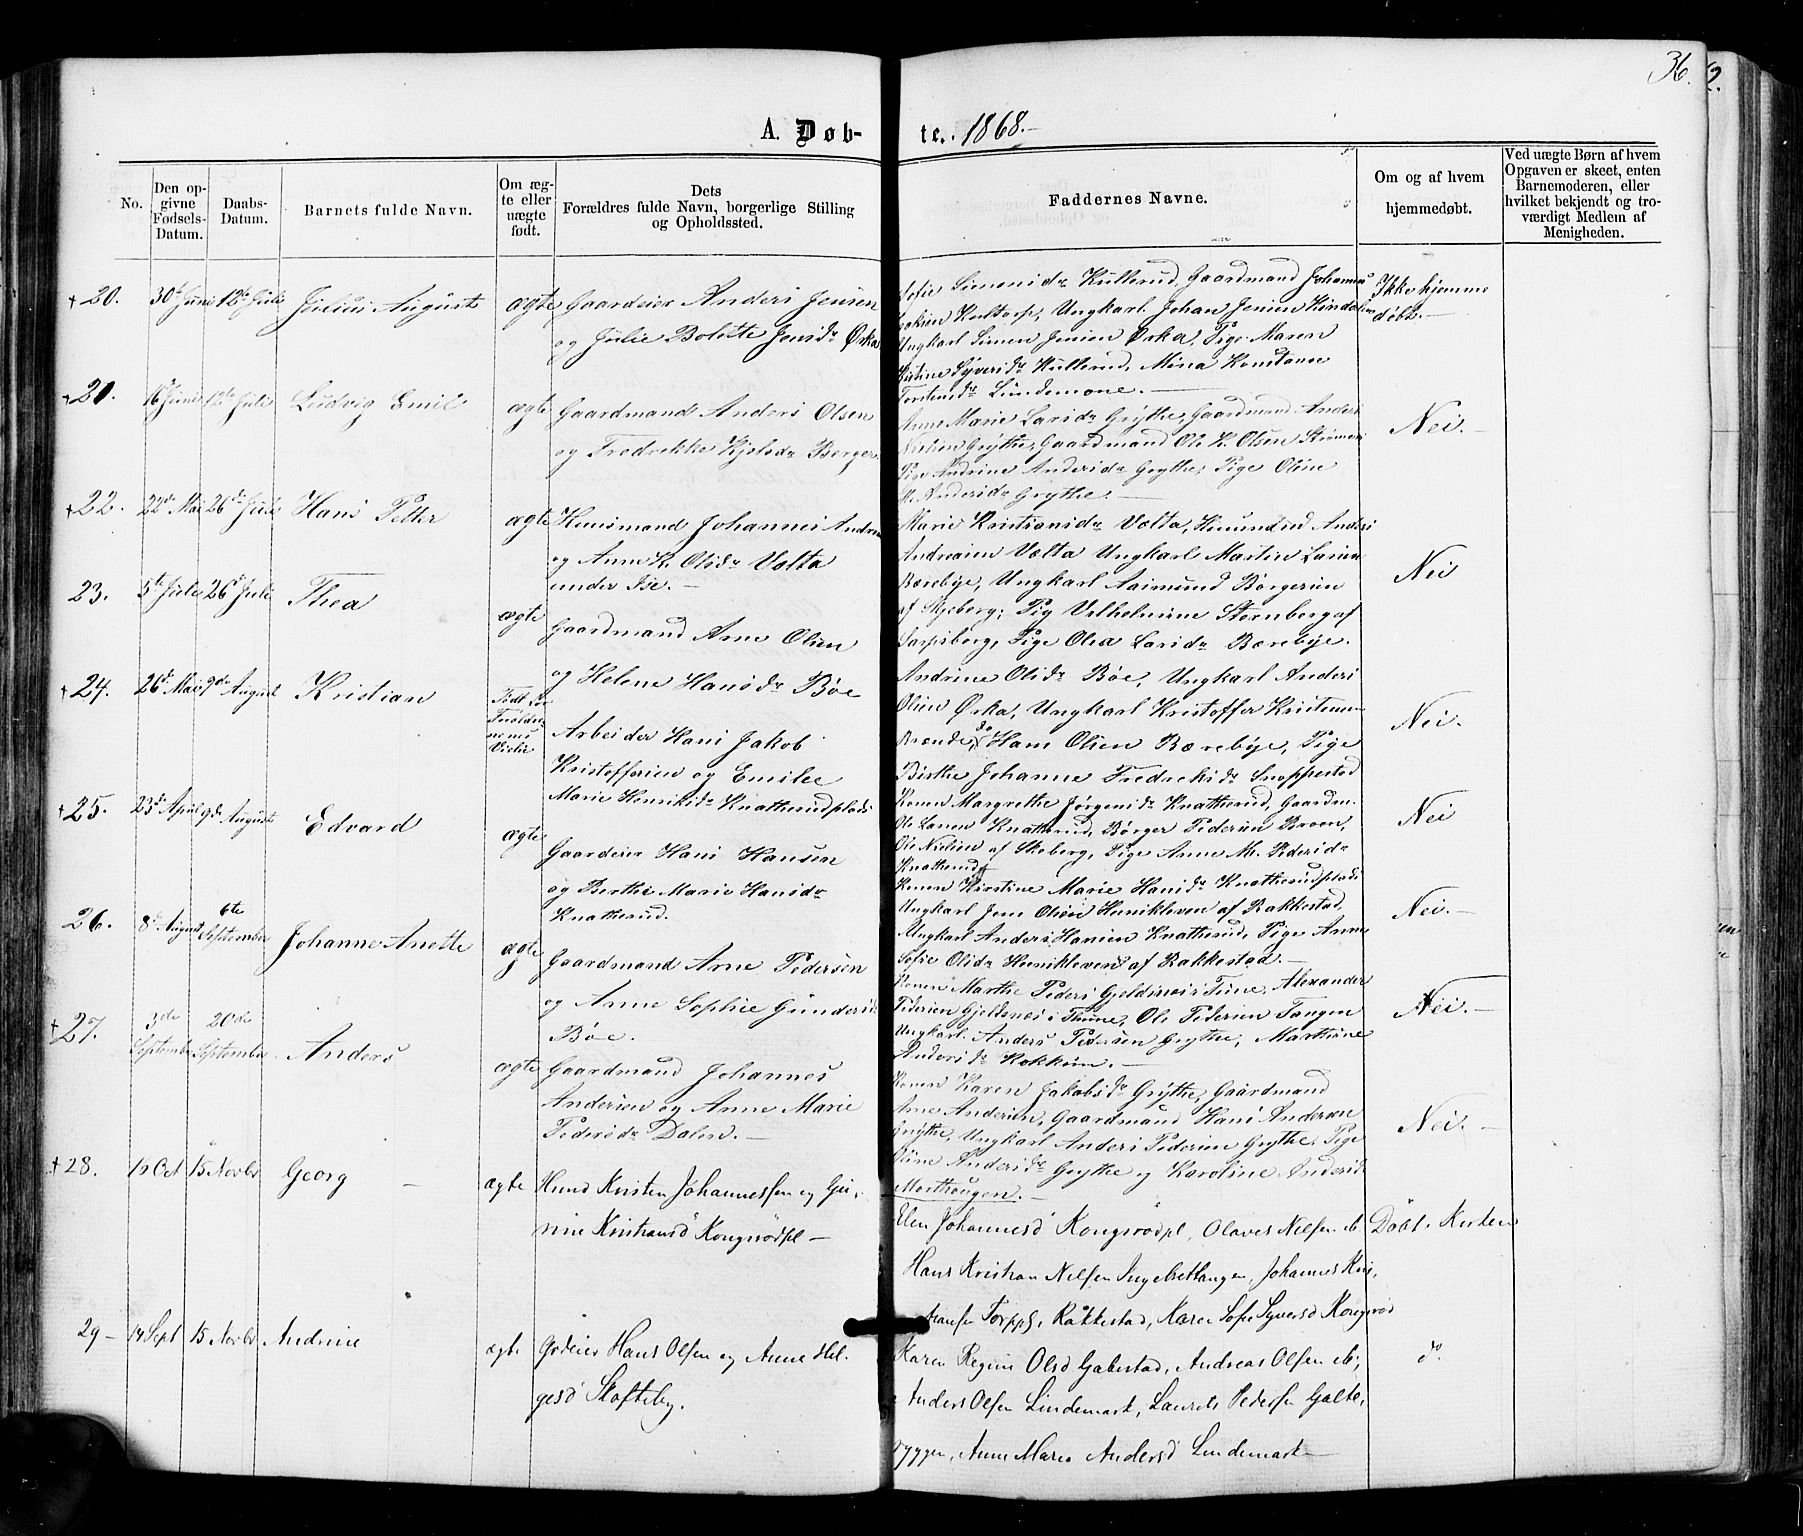 36.
2.
A. Døb-
te. 1868.-
No.
Den op-
givne
Fødsels-
Datum.
Daabs-
Datum.
Barnets fulde Navn.
Om æg-
te eller
uægte
født.
Dets
Forældres fulde Navn, borgerlige Stilling
og Opholdssted.
Faddernes Navne.
Om og af hvem
hjemmedøbt.
Ved uægte Børn af hvem
Opgaven er skeet, enten
Barnemoderen, eller
hvilket bekjendt og tro-
værdigt Medlem af
Menigheden.
+ 20. 30te Juni 12te Juli Julius August ægte Gaardeier Anders Jensen
og Julie Bolette Jensdr Ørka
Sofie Simensdr Kullerud, Gaardmand Johannes
Ungkarl Johan Jensen
Ungkarl Simen Jensen Ørka, Pige Maren
Kirstine Syversdr Kullerud, Mina Konstanse
Lindemone.-
Ikke hjemme
døbt.-
+ 21. 16de Juni 12te Juli Ludvig Emil ægte Gaardmand Anders Olsen
og Fredrikke Berger
Anne Marie Larsdr Grythe, Gaardmand Anders
Nielsen Grythe, Gaardmand Ole K. Olsen
Pige Andrine Andersdr Grythe, Pige Oline
M. Andersdr Grythe.-
Nei.-
+ 22. 22de Mai 26de Juli Hans Petter ægte Huusmand Johannes
og Anne K. Olsdr Vælta
under Ise.-
Marie Kristiansdr Vælta, Anders
Andreasen Vælta Ungkarl Martin Larsen
Bærebye, Ungkarl Aasmund Børgersen
af Skjeberg, Pig Vilhelmine Stornberg af
Sarpsborg, Pige Olea Larsdr Bærebye.
Nei
23. 5te Juli 26de Juli Thea ægte Gaardmand Arne Olsen
og Helene Hansdr Bøe
Andrine Olsdr Bøe, Ungkarl Anders
Olsen Ørka, Ungkarl Kristoffer
do Hans Olsen Bærebye, Pige
Birthe Johanne Fredreksdr Snoppestad
Nei.
+ 24. 26de Mai 9de August Kristian Født før
Vielse Arbeider Hans Jakob
Kristoffersen og Emilie
Marie Henriksdr Knatterudplads
Konen Margrethe Jørgensdr Knatterud, Gaardm.
Ole Larsen Knatterud, Børger Pedersen Broen,
Ole Nielsen af Skeberg, Pige Anne M. Pedersdr
Knatterud
Nei
+ 25. 23de April 9de August Edvard ægte Gaardeier Hans Hansen
og Berthe Marie Hansdr
Knatterud.
Konen Kirstine Marie Hansdr Knatterudplads
Ungkarl Jens Olsen Henikleven af Rakkestad,
Ungkarl Anders Hansen Knatterud, Pige Anne
Sofie Olsdr Henikleven af Rakkestad.-
Nei.-
26. 8de August 6te September Johanne Anette ægte Gaardmand Arne Pedersen
og Anne Sophie Gundersdr
Bøe.
Konen Marthe Peders Gjeldsnes i Tune, Alexander
Pedersen Gjeldsnes i Thune, Ole Pedersen Tangen
Ungkarl Anders Pedersen Grythe, Marthine
Andersdr Kokkim.-
Nei.-
+ 27. 3de September 20de September Anders ægte Gaardmand Johannes
Andersen og Anne Marie
Pedersdr Dalen.-
Konen Karen Jakobsdr Grythe, Gaardmand
Arne Andersen, Gaardmand Hans Andersen
Grythe, Ungkarl Anders Pedersen Grythe, Pige
Oline Andersdr Grythe og Karoline Andersdr
Morthougen.-
Nei.-
+ 28. 15 Novbr Georg - ægte Husmd Kristen Johannessen og Gu-
nine Kristiansd Kongsrødpl -
Elen Johannesd Kongsrødpl, Olaves Nilsen ib
Hans Kristian Nilsen Ingebrettangen, Johannes Kris-
tiansen Rakkestad, Karen Sofie Syversd Kongsrød
Døbt i Kirken
29 - 14 Sept 15 Novbr Andrine ægte Gdeier Hans Olsen og Anne Hel-
gesd Skofteby.
Karen Regine Olsd Gabestad, Andreas Olsen ib,
Anders Olsen Lindemark, Laurits Pedersen Galte-
ryggen, Anne Maria Andersd Lindemark -
do.